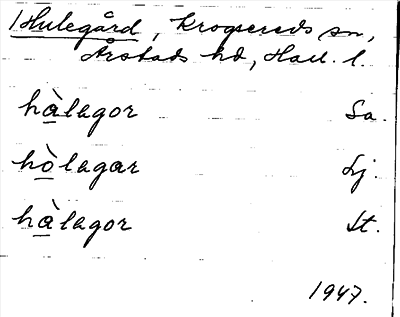 Hulegård, Krogsereds sn,
Årstads hd, Hall. l.
hàlagor Sa.
hòlagar Lj.
hàlagor St.
1947.